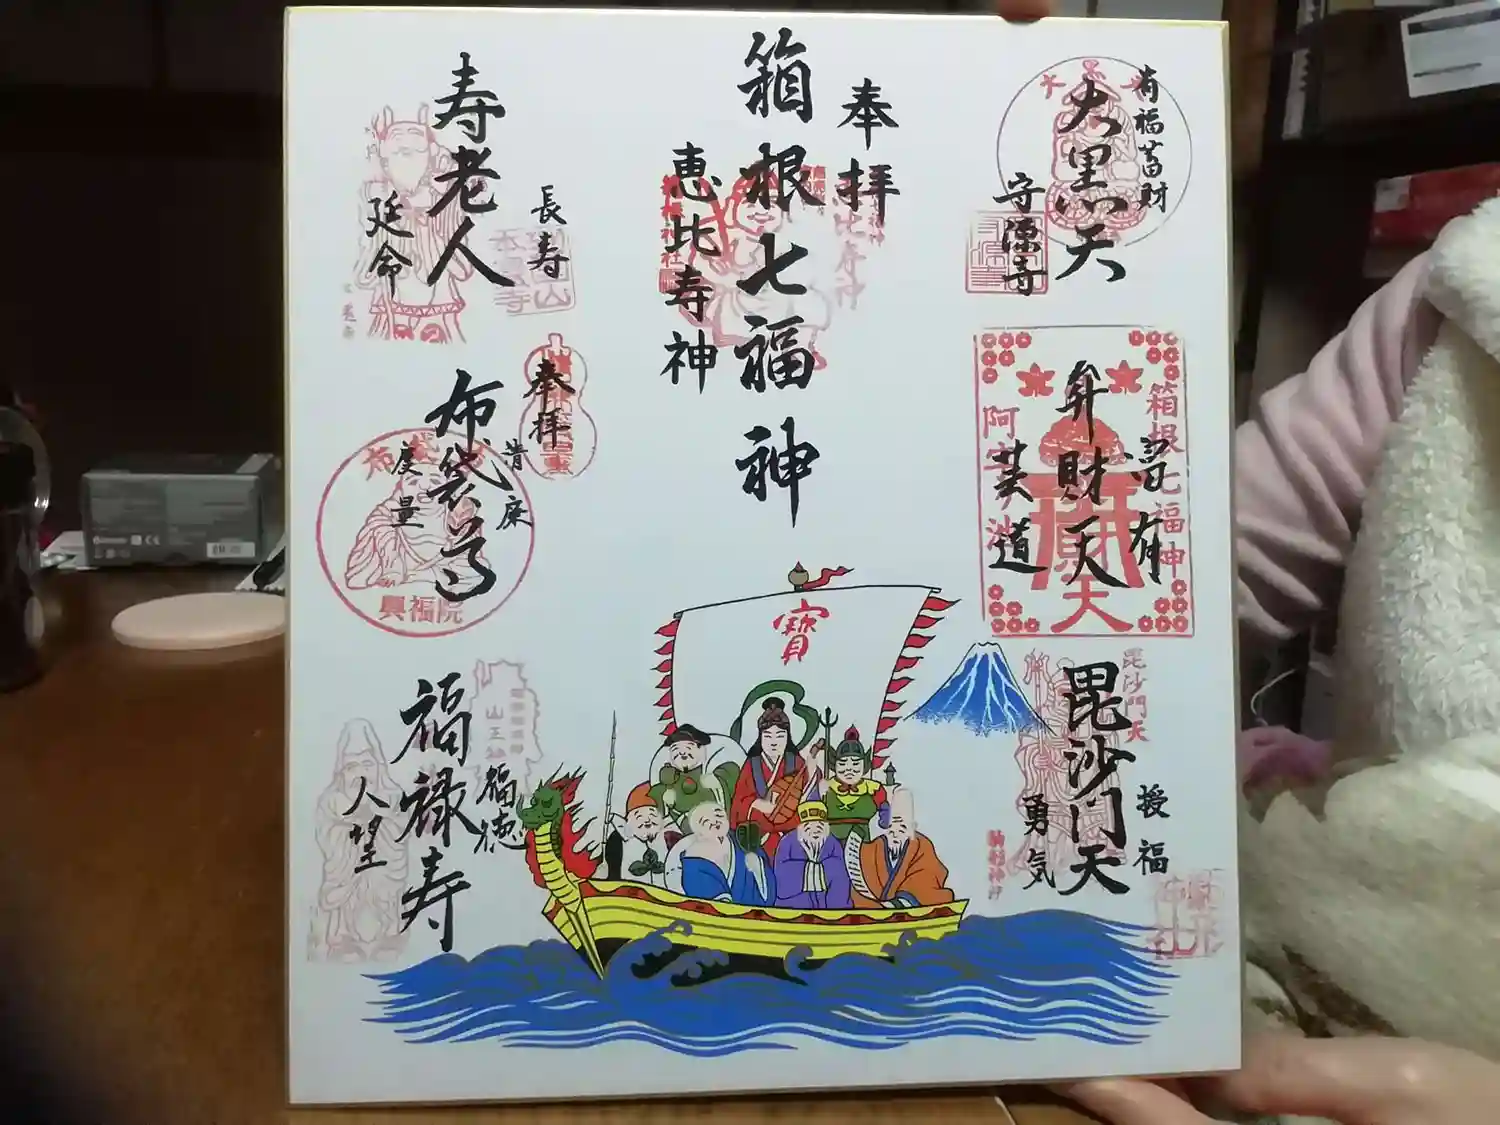 有福蓄財
大黒天
守源寺
奉拝
箱根七福神
恵比寿神
長寿
寿老人
延命
箱根七福神
弁財天
芸道
奉拝
布袋尊
度量
興福院
毘沙門天
授福
毘沙門天
勇気
福徳
福禄寿
人望
寳